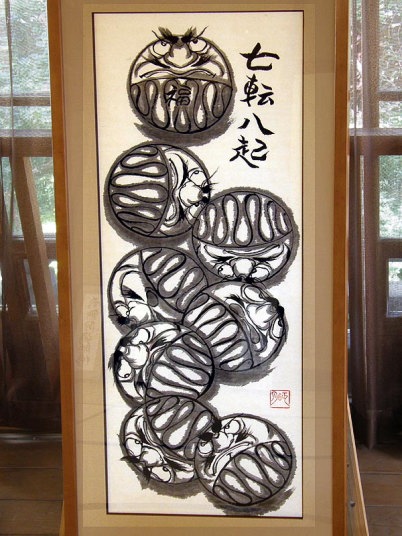 七転八起
福